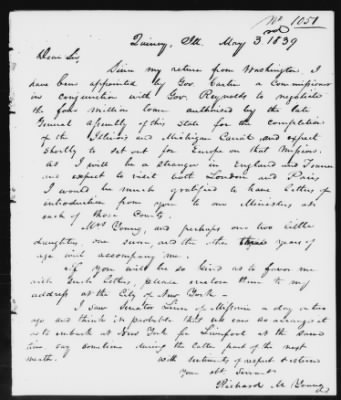 No 1051
Quincy, Ill. May 3rd 1839
Dear Sir,
Since my return from Washington, I
have been appointed by Gov. Carlin a Commissioner
in conjunction with Gov. Reynolds to negotiate
the four million loan authorised by the late
General Assembly of this state for the completion
of the Illinois and Michigan Canal and expect
shortly to set out for Europe on that Mission.
As I will be a stranger in England and France
and expect to visit both London and Paris
I would be much gratified to have letters of
introduction from you to our Ministers at
each of those Courts.
Mrs Young, and perhaps our two little
daughters, one seven, and the other three years of
age will accompany me.
If you will be so kind as to favor me
with such letters, please enclose them to my
address at the City of New York.
I saw Senator Linn of Missouri a day or two
ago and think it probable that we can so arrange it
as to embark at New York for Liverpool at the same
time say sometime during the latter part of the next
month. With sentiments of respect & esteem
Your obt. Servant
Richard M. Young